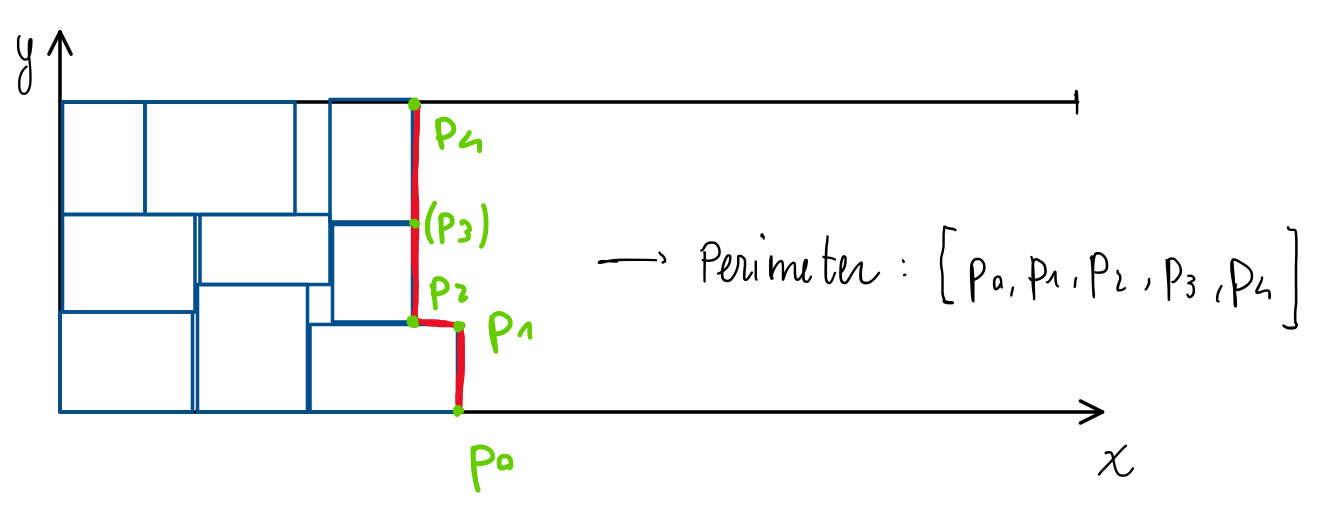 y
p4
(p3)
p2
p1
→ Perimeter : [p0, p1, p2, p3, p4]
p0
x